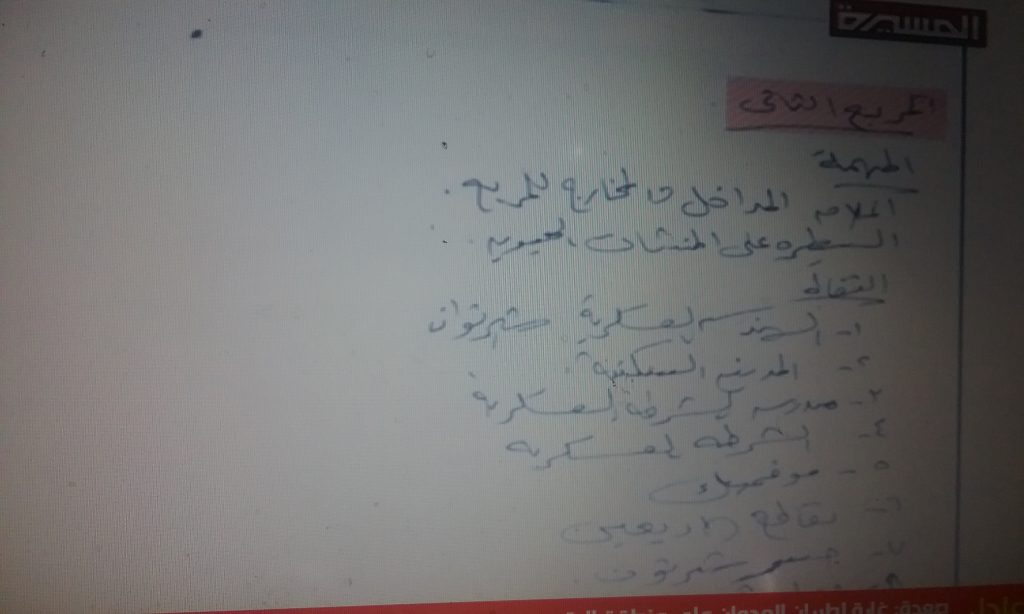 المسيرة
المربع الثاني
المهمة
المداخل والمخارج للمربع.
السيطره على المنشات الحيويه.
النقاط
١- الهندسه العسكرية شيرتون
٢- المدينه السكنية.
٣- مدرسه الشرطه العسكرية
٤- الشرطه العسكريه
٥- موفمبيك
٦- تقاطع الاربعين
٧- جسر شيرتون